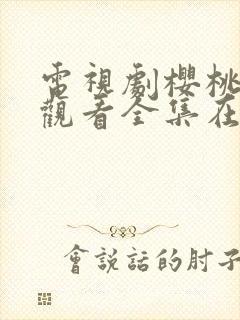 電視劇櫻桃
觀看全集在
會說話的肘子